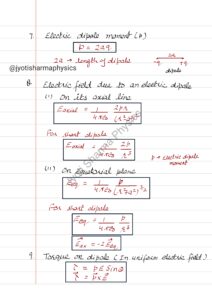 7. Electric dipole moment (p)
p = 2aq
2a → length of dipole
2a
-q +q
dipole
@jyotisharmaphysics
8. Electric field due to an electric dipole
(i) On its axial line
E axial = 1/4πε₀ 2pr/(r²-a²)²
For short dipole
E axial = 1/4πε₀ 2p/r³
p → electric dipole moment
(ii) On equatorial plane
E eq. = 1/4πε₀ p/(r²+a²)^3/2
For short dipole
E eq. = 1/4πε₀ p/r³
E⃗ax = -2E⃗eq.
9. Torque on dipole (In uniform electric field)
τ = pE Sinθ
τ⃗ = p⃗×E⃗